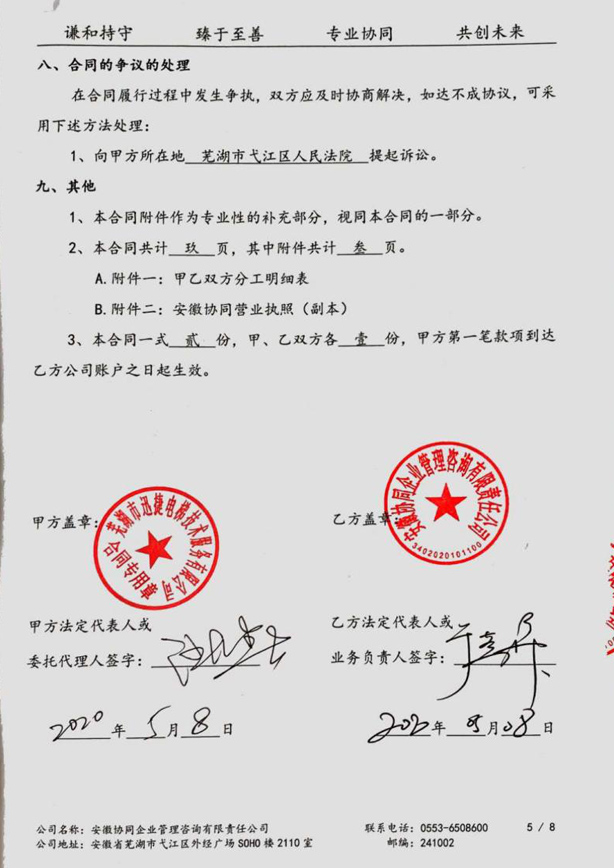 谦和持守 臻于至善 专业协同 共创未来
八、合同的争议的处理
在合同履行过程中发生争执，双方应及时协商解决，如达不成协议，可采
用下述方法处理：
1、向甲方所在地 芜湖市弋江区人民法院 提起诉讼。
九、其他
1、本合同附件作为专业性的补充部分，视同本合同的一部分。
2、本合同共计 玖 页，其中附件共计 叁 页。
A.附件一：甲乙双方分工明细表
B.附件二：安徽协同营业执照（副本）
3、本合同一式 贰 份，甲、乙双方各 壹 份，甲方第一笔款项到达
乙方公司账户之日起生效。
甲方盖章：
芜湖市迅捷电梯技术服务有限公司
合同专用章
乙方盖章
安徽协同企业管理咨询有限责任公司
3402020101100
甲方法定代表人或
委托代理人签字：
乙方法定代表人或
业务负责人签字：
2020年5月8日
2020年05月08日
公司名称：安徽协同企业管理咨询有限责任公司
公司地址：安徽省芜湖市弋江区外经广场SOHO楼2110室
联系电话：0553-6508600
邮编：241002
5 / 8